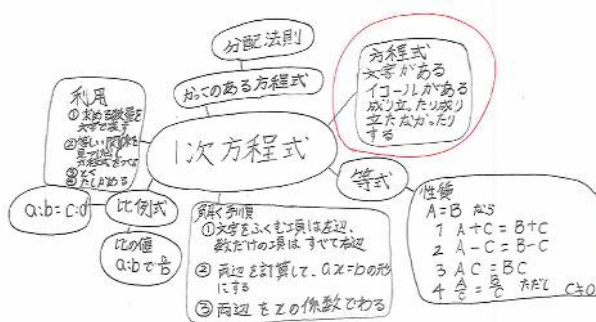 分配法則
かっこのある方程式
方程式
文字がある
イコールがある
成り立ったり成り
立たなかったり
する
利用
①求める数量を
文字で表す
②等しい関係を
見つけ出し
方程式をつくる
③とく
④たしかめる
1次方程式
等式
a:b=c:d
比例式
比の値
a:bで a/b
解く手順
①文字をふくむ項は左辺、
数だけの項はすべて右辺
② 両辺を計算して、ax=bの形
にする
③ 両辺をxの係数でわる
性質
A=B なら
1 A+C=B+C
2 A-C=B-C
3 AC=BC
4 A/C=B/C ただし C≠0